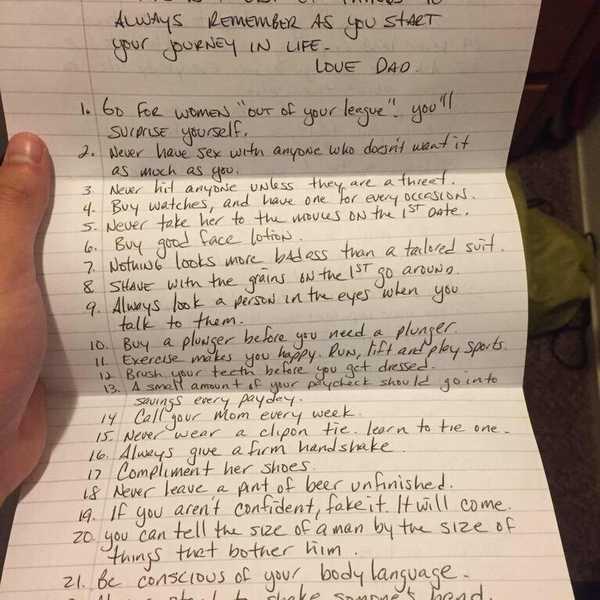 ALWAYS REMEMBER AS you START
your JOURNEY IN LIFE -
LOVE DAD.
1. GO FOR WOMEN "OUT of your league". you'll
SURPRISE yourself.
2. Never have sex with anyone who doesn't want it
as much as you.
3. Never hit anyone unless they are a threat.
4. Buy watches, and have one for every occasion.
5. Never take her to the movies on the 1ST Date.
6. Buy good face lotion.
7. NOTHING looks more badass than a tailored suit.
8 SHAVE with the grains on the 1ST go around.
9. Always look a person in the eyes when you
talk to them.
10. Buy a plunger before you need a plunger.
11. Exercise makes you happy. Run, lift and play sports.
12 Brush your teeth before you get dressed.
13. A small amount of your paycheck should go into
savings every payday.
14 Call your mom every week.
15. Never wear a clipon tie. learn to tie one.
16. Always give a firm handshake.
17 Compliment her shoes.
18 Never leave a pint of beer unfinished.
19. If you aren't confident, fake it. It will come.
20. you can tell the size of a man by the size of
things that bother him.
21. Be conscious of your body language.
shake someone's hand.